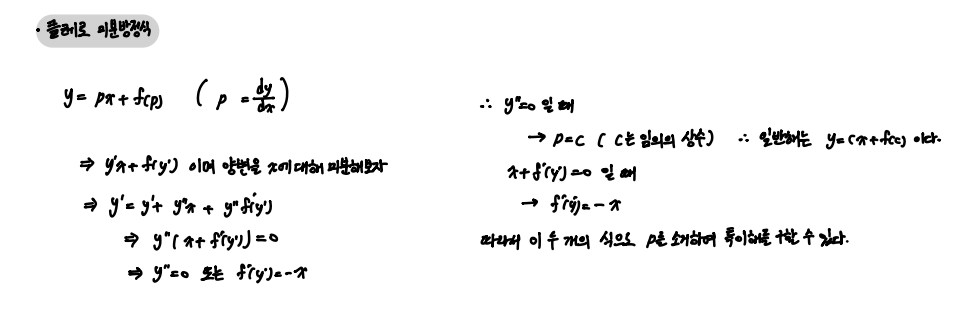 · 클레로 미분방정식
y = px + f(p) ( p = dy/dx )
⇒ y'x + f(y') 이며 양변을 x에 대해 미분해보자
⇒ y' = y' + y''x + y''f'(y')
⇒ y''(x + f'(y')) = 0
⇒ y''=0 또는 f'(y')=-x
∴ y''=0 일 때
→ p=c ( c는 임의의 상수) ∴ 일반해는 y=cx+f(c) 이다.
x+f'(y')=0 일 때
→ f'(y')=-x
따라서 이 두 개의 식으로 p를 소거하여 특이해를 구할 수 있다.